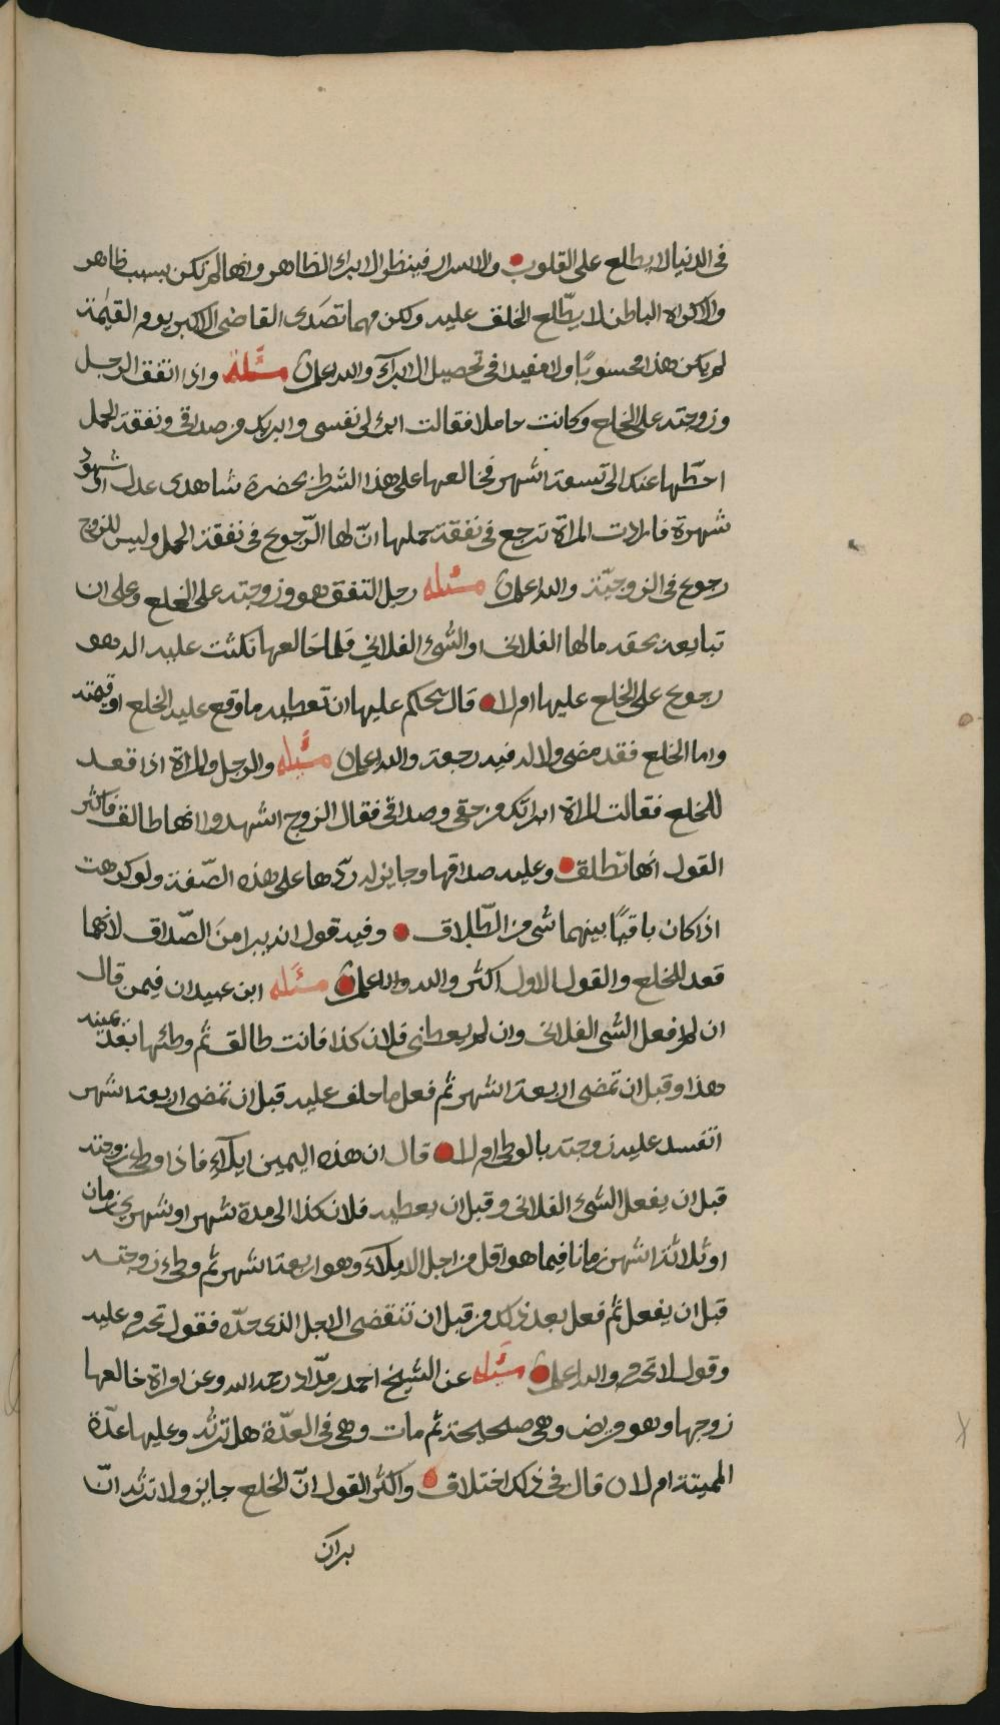 في الدنيا لا يطلع على القلوب والاسرار فينظر الابراء الظاهر وانها لم تكن بسبب ظاهر
والاكراه الباطن لا يطّلع الخلق عليه ولكن مهما تصَدى القاضي الاكبر يوم القيٰمة
لم يكن هذا محسوبًا ولا مفيدا في تحصيل الابرآء والله اعلم مسئلة واذا اتفق الرجل
وزوجته على الخلع وكانت حاملا فقالت ابرئ لي نفسي وابريك من صداقي ونفقة الحمل
احطّها عنك الى تسعة اشهر فخالعها على هذا الشرط بحضرة شاهدي عدل او شهود
شهرة فارادت المراة ترجع في نفقة حملها انّ لها الرّجوع في نفقة الحمل وليس للزوج
رجوع في الزوجيّة والله اعلم مسئله رجل اتفق هو وزوجته على الخلع وعلى ان
تبايعه بحقه مالها الفلاني او الشيء الفلاني فلما خالعها نكثت عليه اله هو
رجوع على الخلع عليها ام لا قال يحكم عليها ان تعطيه ما وقع عليه الخلع او قيمته
واما الخلع فقد مضى ولا له فيه رجعة والله اعلم مسئله والرجل والمراة اذا قعد
للخلع فقالت المراة ابراتك من حقي وصداقي فقال الزوج اشهدوا انها طالق فاكثر
القول انها تطلق وعليه صداقها وجايز له ردّها على هذه الصّفة ولو كرهت
اذا كان باقيًا بينهما شي من الطّلاق وفيه قول انه يبرا منَ الصّداق لانهما
قعد للخلع والقول الاول اكثر والله والله اعلم مسئله ابن عبيدان فيمن قال
ان لم افعل الشي الفلاني وان لم يعطني فلان كذا فانت طالق ثم وطئها بعد يمينه
هذا وقبل ان تمضي اربعة اشهر ثم فعل ما حلف عليه قبل ان تمضي اربعة اشهر
اتفسد عليه زوجته بالوطي ام لا قال ان هذه اليمين ايلآء فاذا وطئ زوجته
قبل ان يفعل الشيء الفلاني وقبل ان يعطيه فلان كذا الى مدة شهر او شهرين زمان
او ثلاثة اشهر زمانا فيما هو اقل من اجل الايلآء وهو اربعة اشهر ثم وطئ زوجته
قبل ان يفعل ثم فعل بعد ذلك من قبل ان تنقضي الاجل الذي حدّه فقول تحرم عليه
وقول لا تحرم والله اعلم مسئله عن الشيخ احمد بن مدّاد رحمه الله وعن امراة خالعها
زوجها وهو مريض وهي صحيحة ثم مات وهي في العدّة هل ترثه وعليها عدّة
المميتة ام لا ن قال في ذلك اختلاف واكثر القول انّ الخلع جايز ولا ترثه انّ
بران